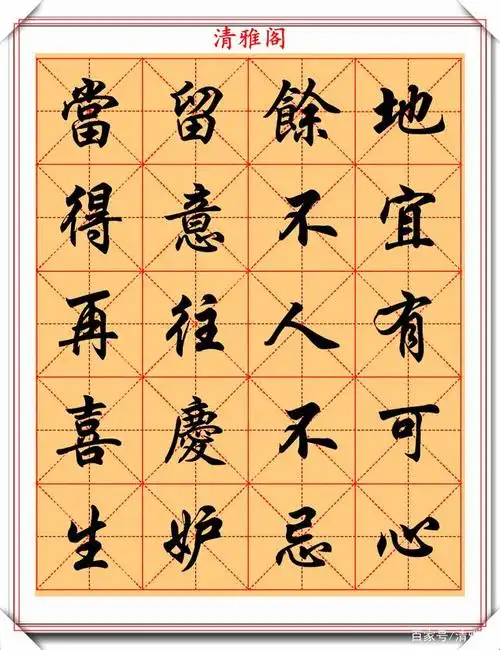 清雅阁
當留餘地
得意不宜
再往人有
喜慶不可
生妒忌心
百家号/清